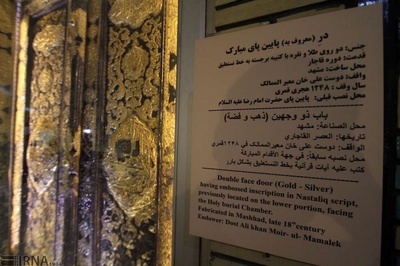 در (معروف به) پایین پای مبارک
جنس: دو روی طلا و نقره با کتیبه برجسته به خط نستعلیق
قدمت: دوره قاجار
محل ساخت: مشهد
واقف: دوست علی خان معیر الممالک
سال وقف: ۱۲۳۸ هجری قمری
محل نصب قبلی: پایین پای حضرت امام رضا علیه السلام
باب ذو وجهین (ذهب و فضة)
محل الصناعة: مشهد
تاریخها: العصر القاجاري
الواقف: دوست علي خان معیرالممالک في ۱۲۳۸قمري
محل نصبه سابقا: في جهة الأقدام المباركة
كتب عليه آيات قرآنية بخط النستعليق بشكل بارز
Double face door (Gold - Silver)
having embossed inscription in Nastaliq script,
previously located on the lower portion, facing
the Holy burial Chamber.
Fabricated in Mashhad, late 18th century
Endower: Dost Ali khan Moir- ul- Mamalek
IRNA